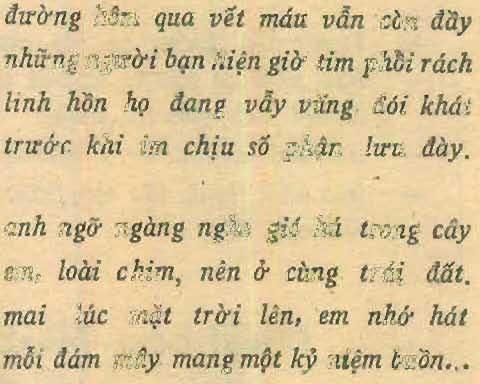 đường hôm qua vết máu vẫn còn đầy
những người bạn hiện giờ tim phồi rách
linh hồn họ đang vẫy vũng đói khát
trước khi im chịu số phận lưu đày.
anh ngỡ ngàng nghe gió hú trong cây
em, loài chim, nên ở cùng trái đất.
mai lúc mặt trời lên, em nhớ hát
mỗi đám mây mang một kỷ niệm buồn...